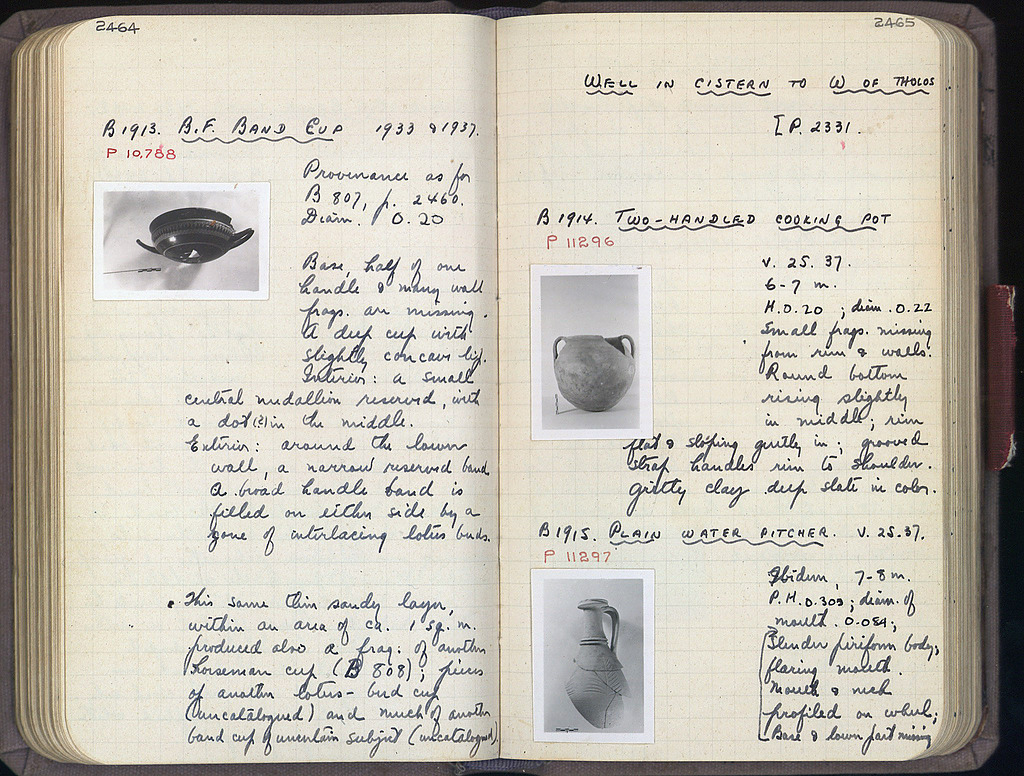 2464
B 1913. B.F. BAND CUP 1933 & 1937.
P 10,788
Provenance as for
B 807, p. 2460.
Diam. 0.20
Base, half of one
handle & many wall
frags. are missing.
A deep cup with
slightly concave lip.
Interior: a small
central medallion reserved, with
a dot (?) in the middle.
Exterior: around the lower
wall, a narrow reserved band
A broad handle band is
filled on either side by a
zone of interlacing lotus buds.
This same thin sandy layer,
within an area of ca. 1 sq. m.
produced also a frag. of another
horseman cup (B 808); pieces
of another lotus-bud cup
(uncatalogued) and much of another
band cup of uncertain subject (uncatalogued).
2465
WELL IN CISTERN TO W OF THOLOS
[P. 2331.
B 1914. TWO-HANDLED COOKING POT
P 11296
V. 25. 37.
6-7 m.
H. 0.20 ; diam. 0.22
Small frags. missing
from rim & walls.
Round bottom
rising slightly
in middle; rim
flat & sloping gently in; grooved
strap handles rim to shoulder.
Gritty clay deep slate in color.
B 1915. PLAIN WATER PITCHER. V. 25. 37.
P 11297
Ibidem, 7-8 m.
P.H. 0.305; diam. of
mouth. 0.084;
Slender piriform body;
flaring mouth.
Mouth & neck
profiled on wheel;
Base & lower part missing